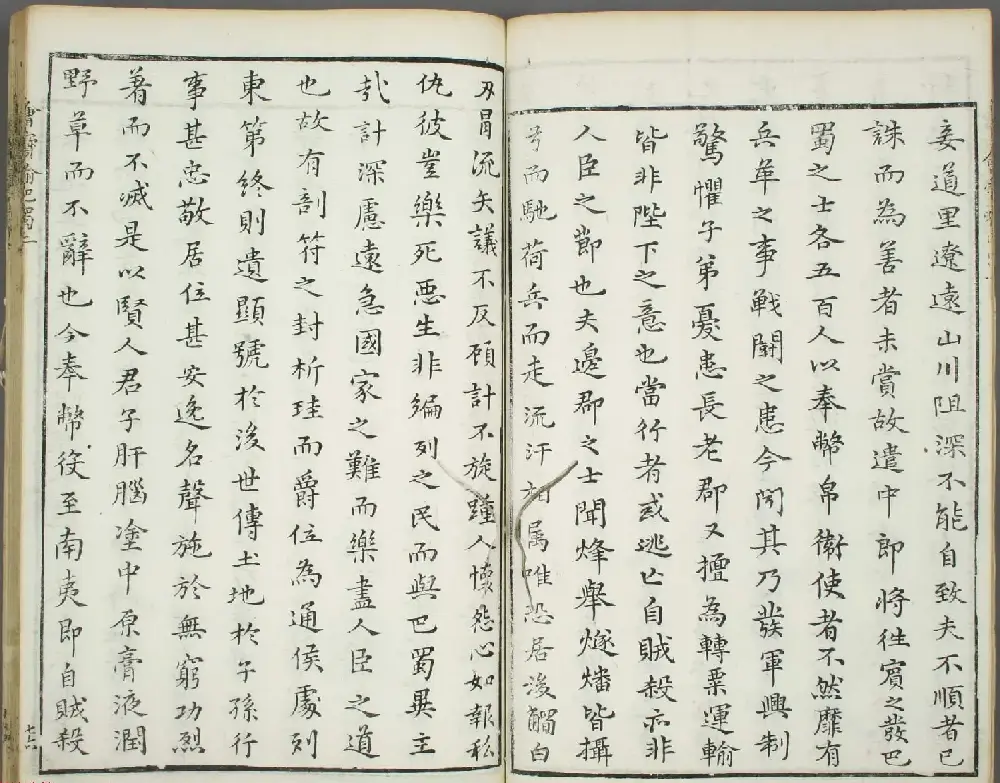 妾道里遼遠山川阻深不能自致夫不順者已
誅而為善者未賞故遣中郎將徃賓之發巴
蜀之士各五百人以奉幣帛衛使者不然靡有
兵革之事戰鬪之患今聞其乃發軍興制
驚懼子弟憂患長老郡又擅為轉粟運輸
皆非陛下之意也當行者或逃亡自賊殺亦非
人臣之節也夫邊郡之士聞烽舉燧燔皆攝
弓而馳荷兵而走流汗相属唯恐居後觸白
刃冒流矢議不反顧計不旋踵人懷怨心如報私
仇彼豈樂死惡生非編列之民而與巴蜀異主
哉計深慮遠急國家之難而樂盡人臣之道
也故有剖符之封析珪而爵位為通侯處列
東第終則遺顯號於後世傳土地於子孫行
事甚忠敬居位甚安逸名聲施於無窮功烈
著而不滅是以賢人君子肝腦塗中原膏液潤
野草而不辭也今奉幣役至南夷即自賊殺
喻巴蜀二